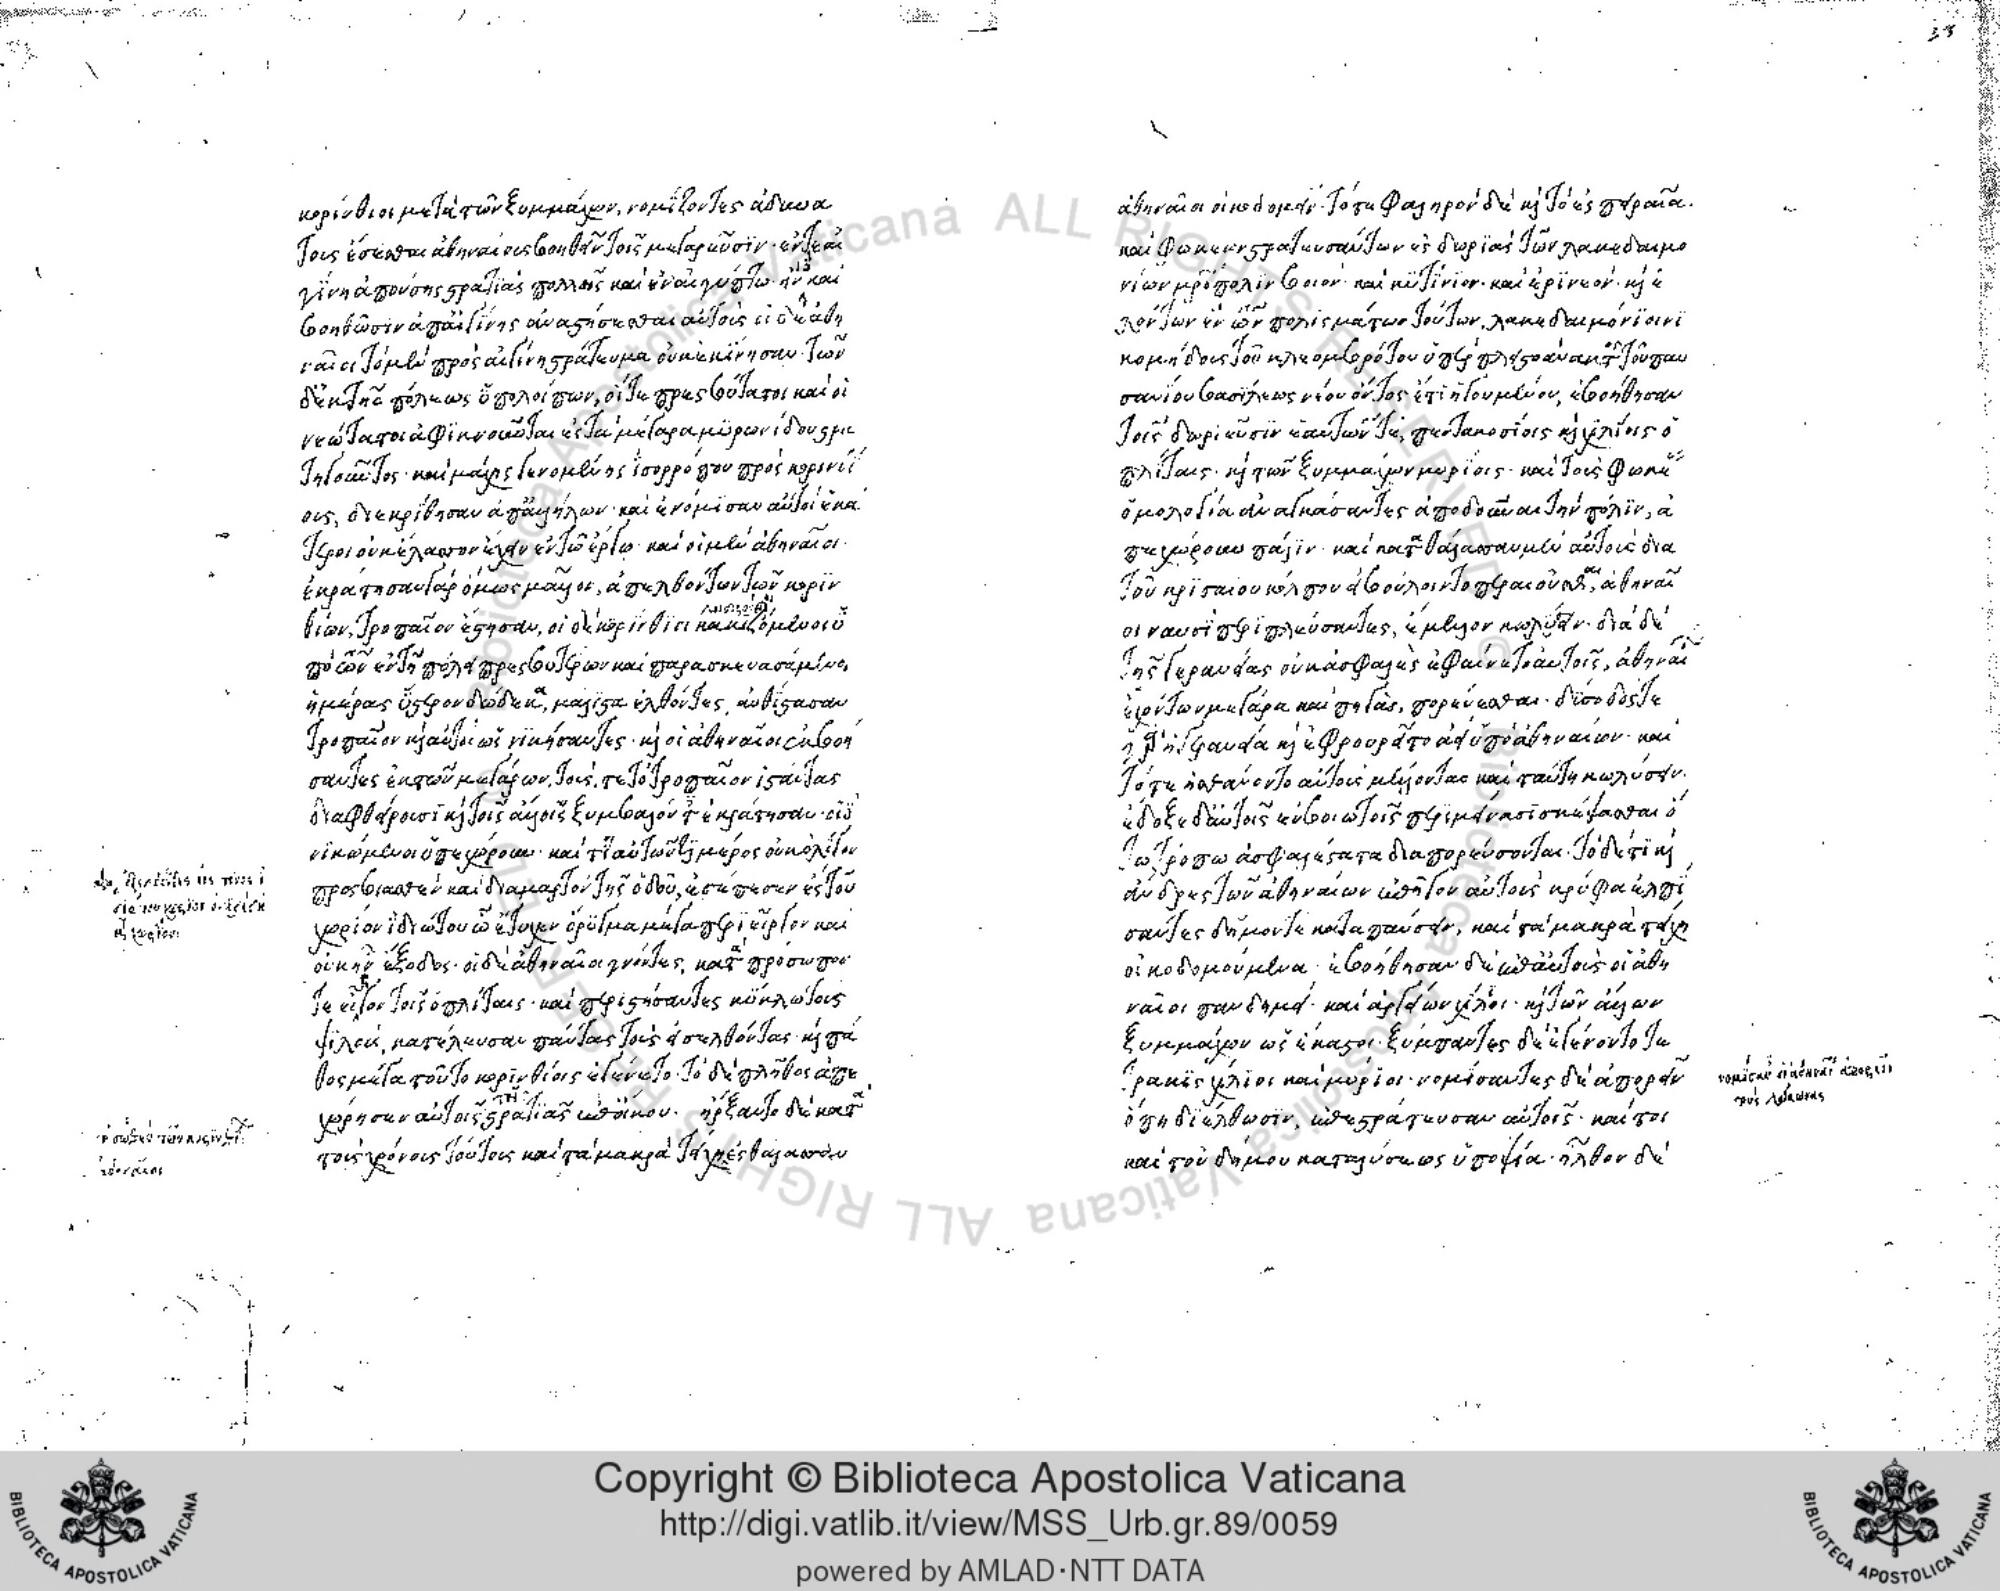 κορίνθιοι μετὰ τῶν ξυμμάχων, νομίζοντες ἀδυνα
τους ἔσεσθαι ἀθηναίους βοηθεῖν τοῖς μεγαρεῦσιν· ἔν τε αἰ
γίνῃ ἀπούσης στρατιᾶς πολλῆς καὶ ἐν αἰγύπτω· ἢν καὶ
βοηθῶσιν ἀπ' αἰγίνης ἀναστήσεσθαι αὐτούς· οἱ δὲ ἀθη
ναῖοι τὸ μὲν πρὸς αἰγίνῃ στράτευμα οὐκ ἐκίνησαν· τῶν
δ' ἐκ τῆς πόλεως ὑπολοίπων, οἵ τε πρεσβύτατοι καὶ οἱ
νεώτατοι ἀφικνοῦνται ἐς τὰ μέγαρα μυρωνίδου στρα
τηγοῦντος· καὶ μάχης γενομένης ἰσορρόπου πρὸς κορινθί
ους, διεκρίθησαν ἀπ' ἀλλήλων· καὶ ἐνόμισαν αὐτοὶ ἑκά
τεροι οὐκ ἔλασσον ἔχειν ἐν τῶ ἔργω· καὶ οἱ μὲν ἀθηναῖοι
ἐκράτησαν γὰρ ὅμως μᾶλλον, ἀπελθόντων τῶν κοριν
θίων, τροπαῖον ἔστησαν, οἱ δὲ κορίνθιοι κακιζόμενοι ὑ
πὸ τῶν ἐν τῇ πόλει πρεσβυτέρων καὶ παρασκευασάμενοι,
ἡμέρας ὕστερον δώδεκα, μάλιστα ἐλθόντες, ἀνθίστασαν
τροπαῖον καὶ αὐτοὶ ὡς νικήσαντες· καὶ οἱ ἀθηναῖοι ἐκβοη
σαντες ἐκ τῶν μεγάρων, τούς τε τὸ τροπαῖον ἱστάντας
διαφθείρουσι καὶ τοῖς ἄλλοις ξυμβαλόντες ἐκράτησαν· οἱ δὲ
νικώμενοι ὑπεχώρουν· καί τι αὐτῶν μέρος οὐκ ὀλίγον
προσβιασθὲν καὶ διαμαρτὸν τῆς ὁδοῦ, ἐσέπεσεν ἔς του
χωρίον ἰδιώτου ὧ ἔτυχεν ὄρυγμα μέγα περιεῖργον καὶ
οὐκ ἦν ἔξοδος· οἱ δὲ ἀθηναῖοι γνόντες, κατὰ πρόσωπον
τε εἶργον τοῖς ὁπλίταις· καὶ περιστήσαντες κύκλω τοὺς
ψιλούς, κατέλευσαν πάντας τοὺς ἐσελθόντας· καὶ πά
θος μέγα τοῦτο κορινθίοις ἐγένετο· τὸ δὲ πλῆθος ἀπε
χώρησεν αὐτοῖς τῆς στρατιᾶς ἐπ' οἴκου· ἤρξαντο δὲ κατὰ
τοὺς χρόνους τούτους καὶ τὰ μακρὰ τείχη ἐς θάλασσαν
ἐσώθησαν τῶν κορινθίων
ἀθηναῖοι
38
ἀθηναῖοι οἰκοδομεῖν· τό τε φαληρόνδε καὶ τὸ ἐς πειραιᾶ.
καὶ φωκέων στρατευσάντων ἐς δωριᾶς τῶν λακεδαιμο
νίων μητρόπολιν βοιόν· καὶ κυτίνιον· καὶ ἐρινεόν· καὶ ἑ
λόντων ἓν τῶν πολισμάτων τούτων, λακεδαιμόνιοι νι
κομήδους τοῦ κλεομβρότου ὑπὲρ πλειστοάνακτος τοῦ παυ
σανίου βασιλέως νέου ὄντος ἔτι ἡγουμένου, ἐβοήθησαν
τοῖς δωριεῦσιν ἑαυτῶν τε, πεντακοσίοις καὶ χιλίοις ὁ
πλίταις· καὶ τῶν ξυμμάχων μυρίοις· καὶ τοὺς φωκέας
ὁμολογία ἀναγκάσαντες ἀποδοῦναι τὴν πόλιν, ἀ
πεχώρουν πάλιν· καὶ κατὰ θάλασσαν μὲν αὐτοὺς διὰ
τοῦ κρισαίου κόλπου εἰ βούλοιντο περαιοῦσθαι, ἀθηναῖ
οι ναυσὶ περιπλεύσαντες, ἔμελλον κωλύσειν· διὰ δὲ
τῆς γερανείας οὐκ ἀσφαλὲς ἐφαίνετο αὐτοῖς, ἀθηναίων
ἐχόντων μέγαρα καὶ πηγάς, πορεύεσθαι· δύσοδός τε
ἡ γὰρ γεράνεια καὶ ἐφρουρεῖτο ἀεὶ ὑπὸ ἀθηναίων· καὶ
τότε ᾐσθάνοντο αὐτοὺς μέλλοντας καὶ ταύτῃ κωλύσειν.
ἔδοξε δ' αὐτοῖς ἐν βοιωτοῖς περιμείνασι σκέψασθαι ὅ
τω τρόπω ἀσφαλέστατα διαπορεύσονται· τὸ δέ τι καὶ
ἄνδρες τῶν ἀθηναίων ἐπῆγον αὐτοὺς κρύφα ἐλπί
σαντες δῆμόν τε καταπαύσειν, καὶ τὰ μακρὰ τείχη
οἰκοδομούμενα· ἐβοήθησαν δὲ ἐπ' αὐτοὺς οἱ ἀθη
ναῖοι πανδημεί· καὶ ἀργείων χίλιοι· καὶ τῶν ἄλλων
ξυμμάχων ὡς ἕκαστοι· ξύμπαντες δὲ ἐγένοντο τε
τρακισχίλιοι καὶ μύριοι· νομίσαντες δὲ ἀπορεῖν
ὅπῃ διέλθωσιν, ἐπεστράτευσαν αὐτοῖς· καί τοι
καὶ τοῦ δήμου καταλύσεως ὑποψία· ἦλθον δὲ
Copyright © Biblioteca Apostolica Vaticana
http://digi.vatlib.it/view/MSS_Urb.gr.89/0059
powered by AMLAD·NTT DATA
BIBLIOTECA APOSTOLICA VATICANA
BIBLIOTECA APOSTOLICA VATICANA